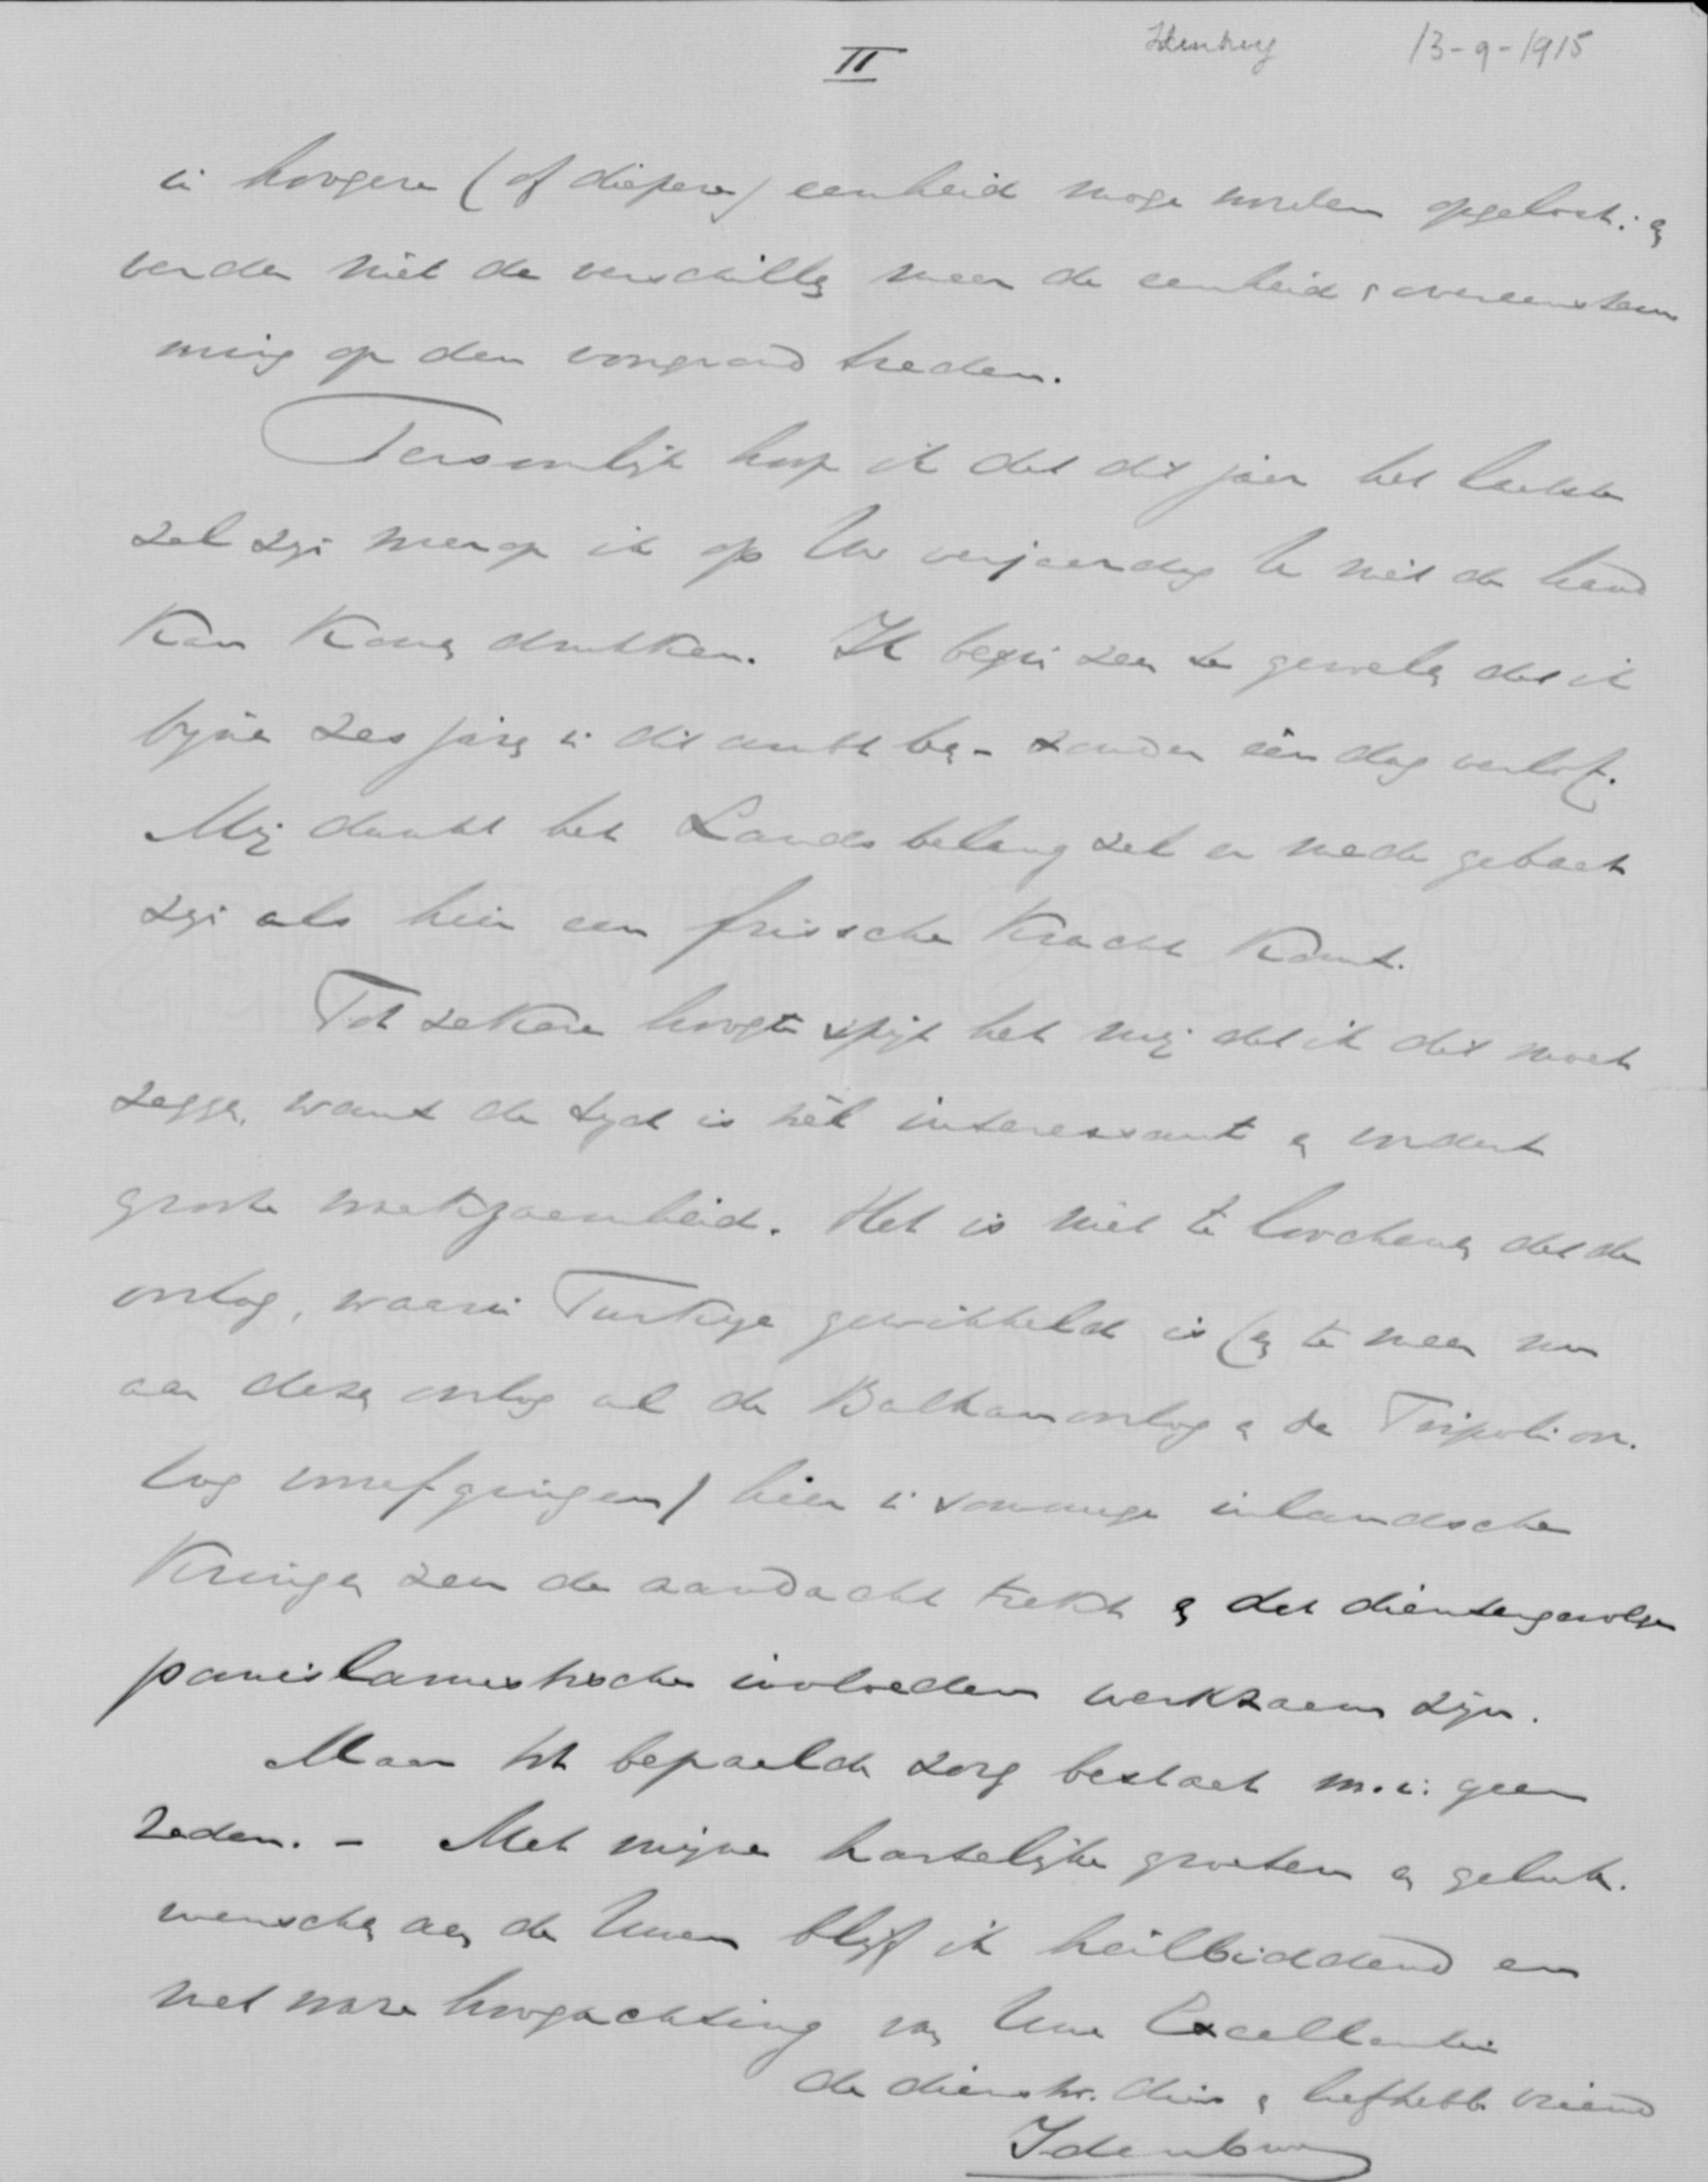 II
Idenburg 13-9-1915
in hoogere (of diepere) eenheid moge worden opgelost: en
verder niet de verschillen meer de eenheid & overeenstem
ming op den voorgrond treden.
Persoonlijk hoop ik dat dit jaar het laatste
zal zijn waarop ik op Uw verjaardag U niet de hand
kan komen drukken. Ik begin zeer te gevoelen dat ik
bijna zes jaren in dit ambt ben - zonder één dag verlof.
Mij dunkt het Landsbelang zal er mede gebaat
zijn als hier een frissche kracht komt.
Tot zekere hoogte spijt het mij dat ik dit moet
zeggen, want de tijd is hél interessant en vordert
groote werkzaamheid. Het is niet te loochenen dat de
oorlog, waarin Turkye gewikkeld is (en te meer nu
aan dezen oorlog al de Balkanoorlog en de Tripoli oor.
log vooraf gingen) hier in sommige inlandsche
Kringen zeer de aandacht trekt en dat dientengevolge
panislamistische invloeden werkzaam zijn.
Maar tot bepaalde zorg bestaat m.i. geen
reden. - Met mijne hartelijke groeten en geluk.
wenschen aan de Uwen blijf ik heilbiddend en
met ware hoogachting van Uwe Excellentie
de dienstw. dien. & liefhebb. vriend
Idenburg